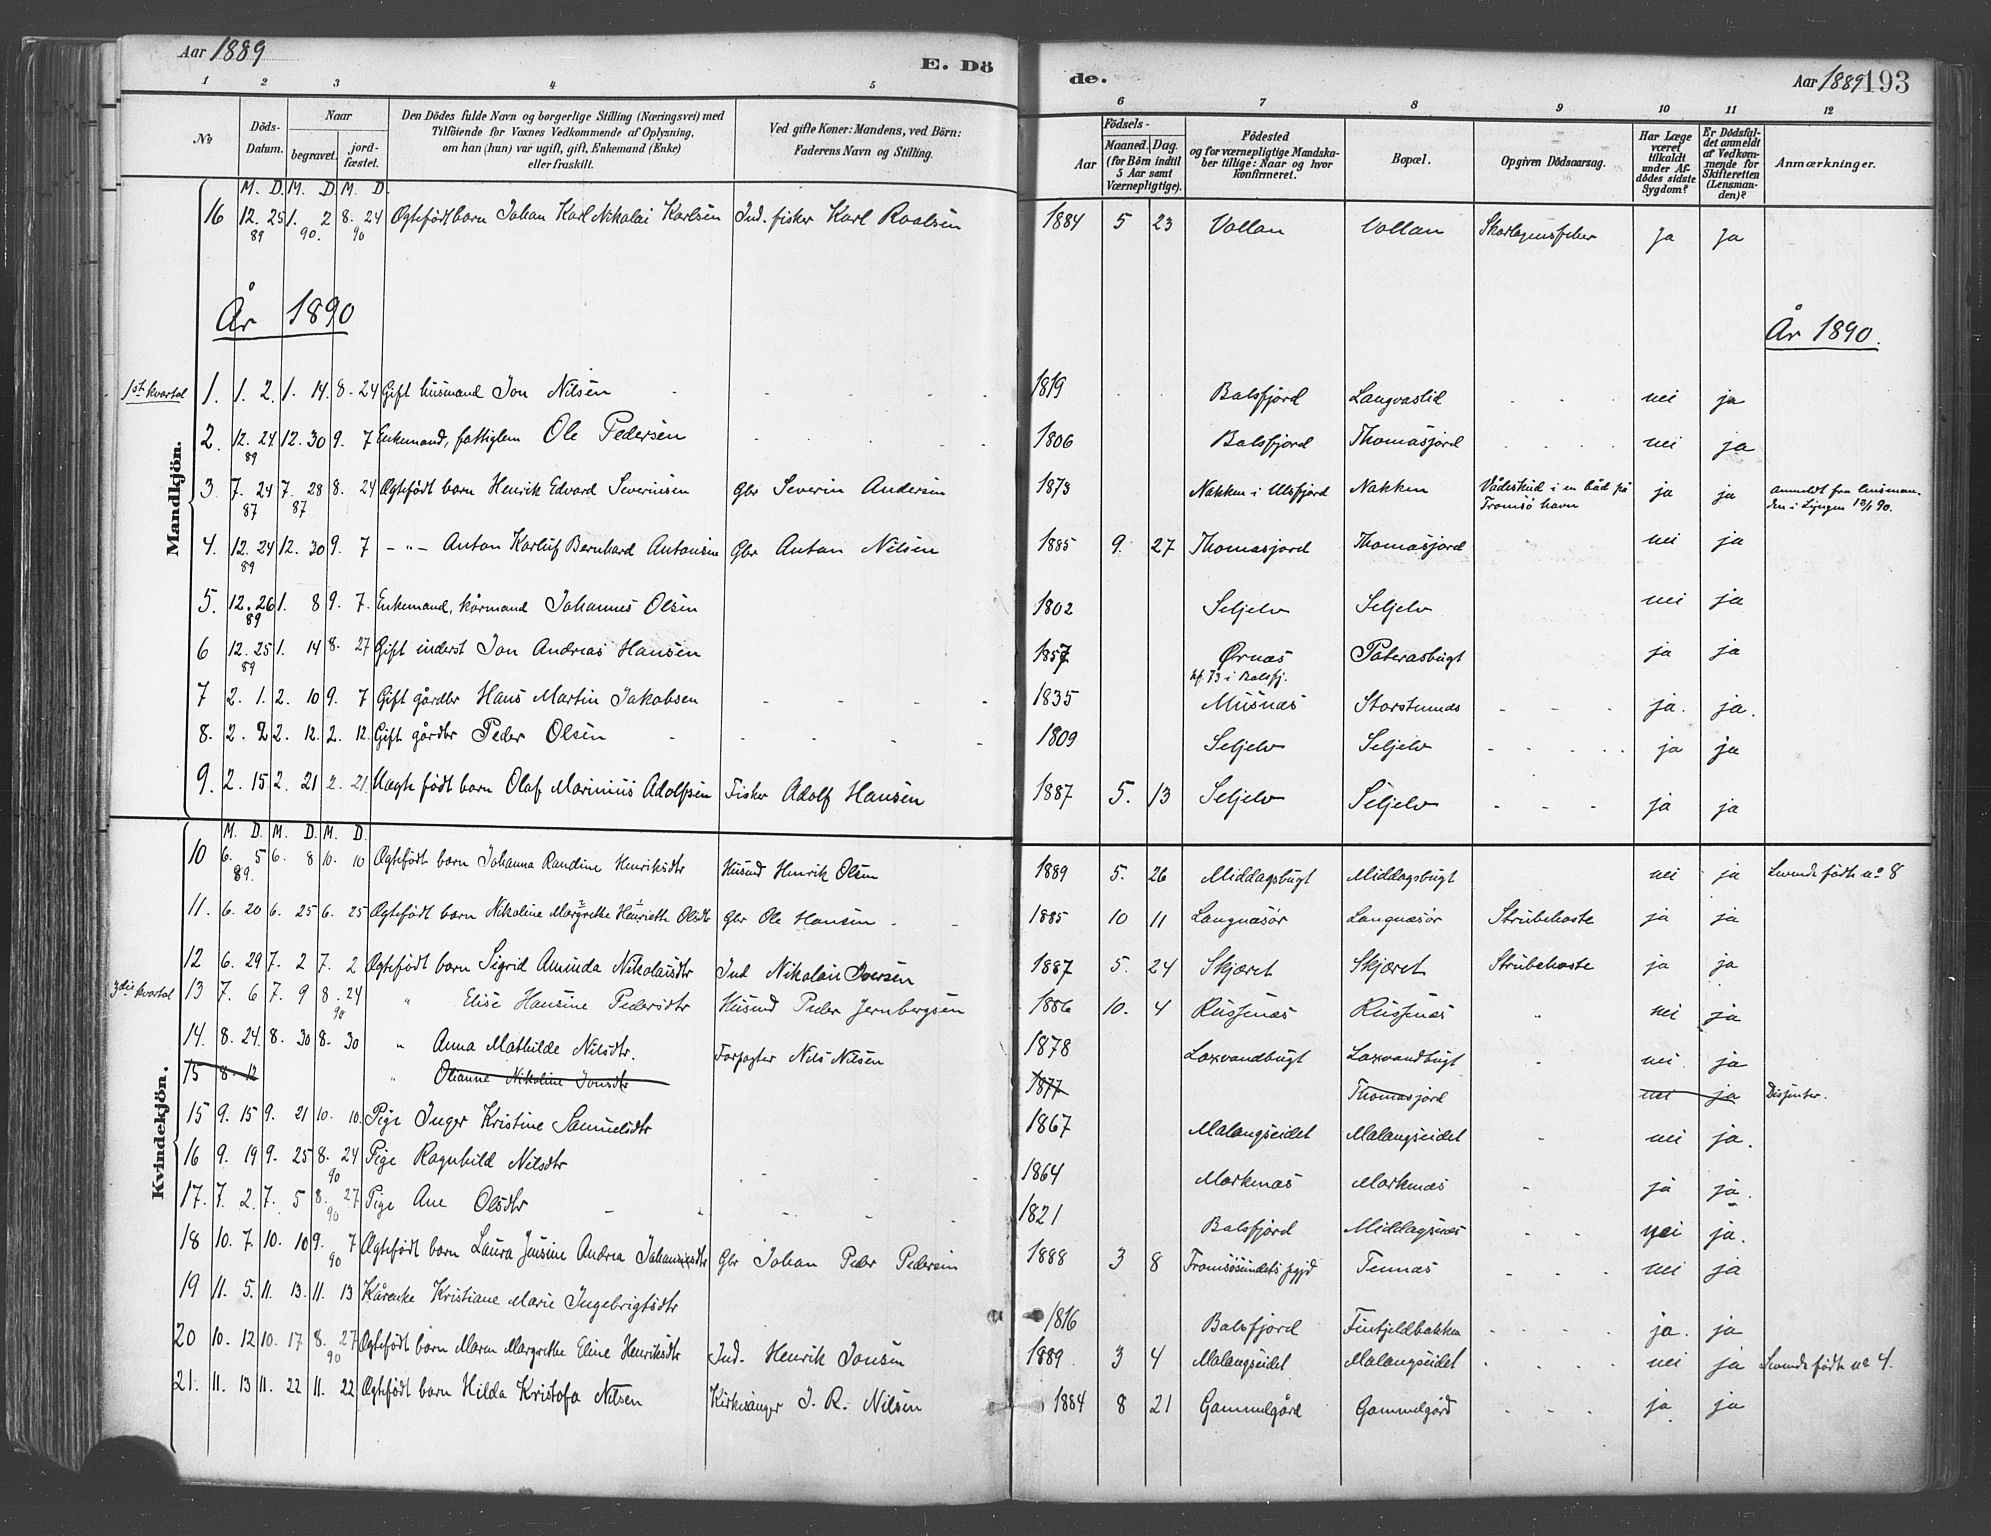 Aar 1889
E. Dö
de.
Aar 1889 193
1 2 3 4 5 6 7 8 9 10 11 12
No
Döds-Datum.
Naar
begravet.
jord-fæstet.
Den Dödes fulde Navn og borgerlige Stilling (Næringsvei) med
Tilföiende för Voxnes Vedkommende af Oplysning,
om han (hun) var ugift, gift, Enkemand (Enke)
eller fraskilt.
Ved gifte Koner: Mandens, ved Börn:
Faderens Navn og Stilling.
Födsels-
Aar
Maaned. Dag.
(for Börn indtil
5 Aar samt
Værnepligtige).
Födested
og for værnepligtige Mandska-
ber tillige: Naar og hvor
konfirmeret.
Bopæl.
Opgiven Dödsaarsag.
Har Læge
været
tilkaldt
under Af-
dödes sidste
Sygdom?
Er Dödsfal-
det anmeldt
af Vedkom-
mende for
Skifteretten
(Lensman-
den)?
Anmærkninger.
M. D. M. D. M. D.
16 12. 25 89 1. 2 90. 8. 24 90 Ægtefödt barn Johan Karl Nikolai Karlsen Ind. fisker Karl Roalsen 1884 5 23 Vollan Vollan Skarlagensfeber ja ja
År 1890
År 1890.
1st kvartal
Mandkjön.
1. 1. 2. 1. 14. 8. 24 Gift husmand Jon Nilsen 1819 Balsfjord Langvaslid nei ja
2. 12. 24 89 12. 30 9. 7 Enkemand, fattiglem Ole Pedersen 1806 Balsfjord Thomasjord nei ja
3 7. 24 87 7. 28 87 8. 24 Ægtefödt barn Henrik Edvard Severinsen Gbr Severin Andersen 1873 Nakken i Ulsfjord Nakken Vådeskud i en båd på Tromsö havn ja ja Anmeldt fra lensman-
den i Lyngen 13/1 90.
4. 12. 24 89 12. 30 9. 7 – " – Anton Karluf Bernhard Antonsen Gbr Anton Nilsen 1885 9. 27 Thomasjord Thomasjord nei ja
5. 12. 26 89 1. 8 9. 7. Enkemand, kårmand Johannes Olsen 1802 Seljelv Seljelv nei ja
6 12. 25 89 1. 14 8. 27 Gift inderst Jon Andreas Hansen 1857 Ørnæs kf. 73 i Balsfj. Paterasbugt ja ja
7 2. 1. 2. 10 9. 7 Gift gårdbr Hans Martin Jakobsen 1835 Musnæs Storstennæs ja. ja.
8. 2. 2 2. 12. 2. 12. Gift gårdbr Peder Olsen 1809 Seljelv Seljelv ja ja
9. 2. 15 2. 21 2. 21. Uægte födt barn Olaf Marinius Adolfsen Fisker Adolf Hansen 1887 5. 13 Seljelv Seljelv ja ja
M. D. M. D. M. D.
Kvindekjön.
10 6. 5 89. 6. 8 10. 10 Ægtefödt barn Johanna Randine Henriksdtr Husmd Henrik Olsen 1889 5. 26 Middagsbugt Middagsbugt nei ja Levende födte no 8
11. 6. 20 6. 25 6. 25 Ægtefödt barn Nikoline Margrethe Henriette Olsdtr Gbr Ole Hansen 1885 10 11 Langnæsör Langnæsör Strubehoste ja ja
12 6. 29 7. 2 7. 2 Ægtefödt barn Sigrid Aminda Nikolaisdtr Ind Nikolai Iversen 1887 5. 24 Skjæret Skjæret Strubehoste ja ja
3die kvartal
13 7. 6 7. 9 8. 24 90 " Elise Hansine Pedersdtr Husmd Peder Jernbergsen 1886 10. 4 Russenæs Russenæs " nei ja
14. 8. 24. 8. 30 8. 30 " Anna Mathilde Nilsdtr. Forpagter Nils Nilsen 1878 Laxvandbugt Laxvandbugt nei ja
15 8. 12 " Olianne Nikoline Jonsdtr 1877 Thomasjord nei ja Dissenter.
15 9. 15 9. 21 10. 10. Pige Inger Kristine Samuelsdtr 1867 Malangseidet Malangseidet nei ja.
16 9. 19 9. 25 8. 24 90 Pige Ragnhild Nilsdtr 1864 Markenæs Markenæs ja ja.
17. 7. 2. 7. 5 8. 27 90 Pige Ane Olsdtr 1821 Balsfjord Middagsnæs nei ja.
18 10. 7. 10. 10 9. 7 90 Ægtefödt barn Laura Jensine Andrea Johannesdtr Gbr Johan Peder Pedersen 1888 3 8 Tromsösundets pgjd Tennæs nei ja
19 11. 5. 11. 13. 11. 13 Kårenke Kristiane Marie Ingebrigtsdtr 1816 Balsfjord Finfjeldbakken ja. ja
20 10. 12 10. 17 8. 27 90 Ægtefödt barn Maren Margrethe Eline Henriksdtr Ind. Henrik Jonsen 1889. 3 4 Malangseidet Malangseidet nei ja Levende födte no 4.
21. 11. 13 11. 22 11. 22 Ægtefödt barn Hilda Kristofa Nilsen Kirkesanger J. R. Nilsen 1884 8 21 Gammelgård Gammelgård ja ja